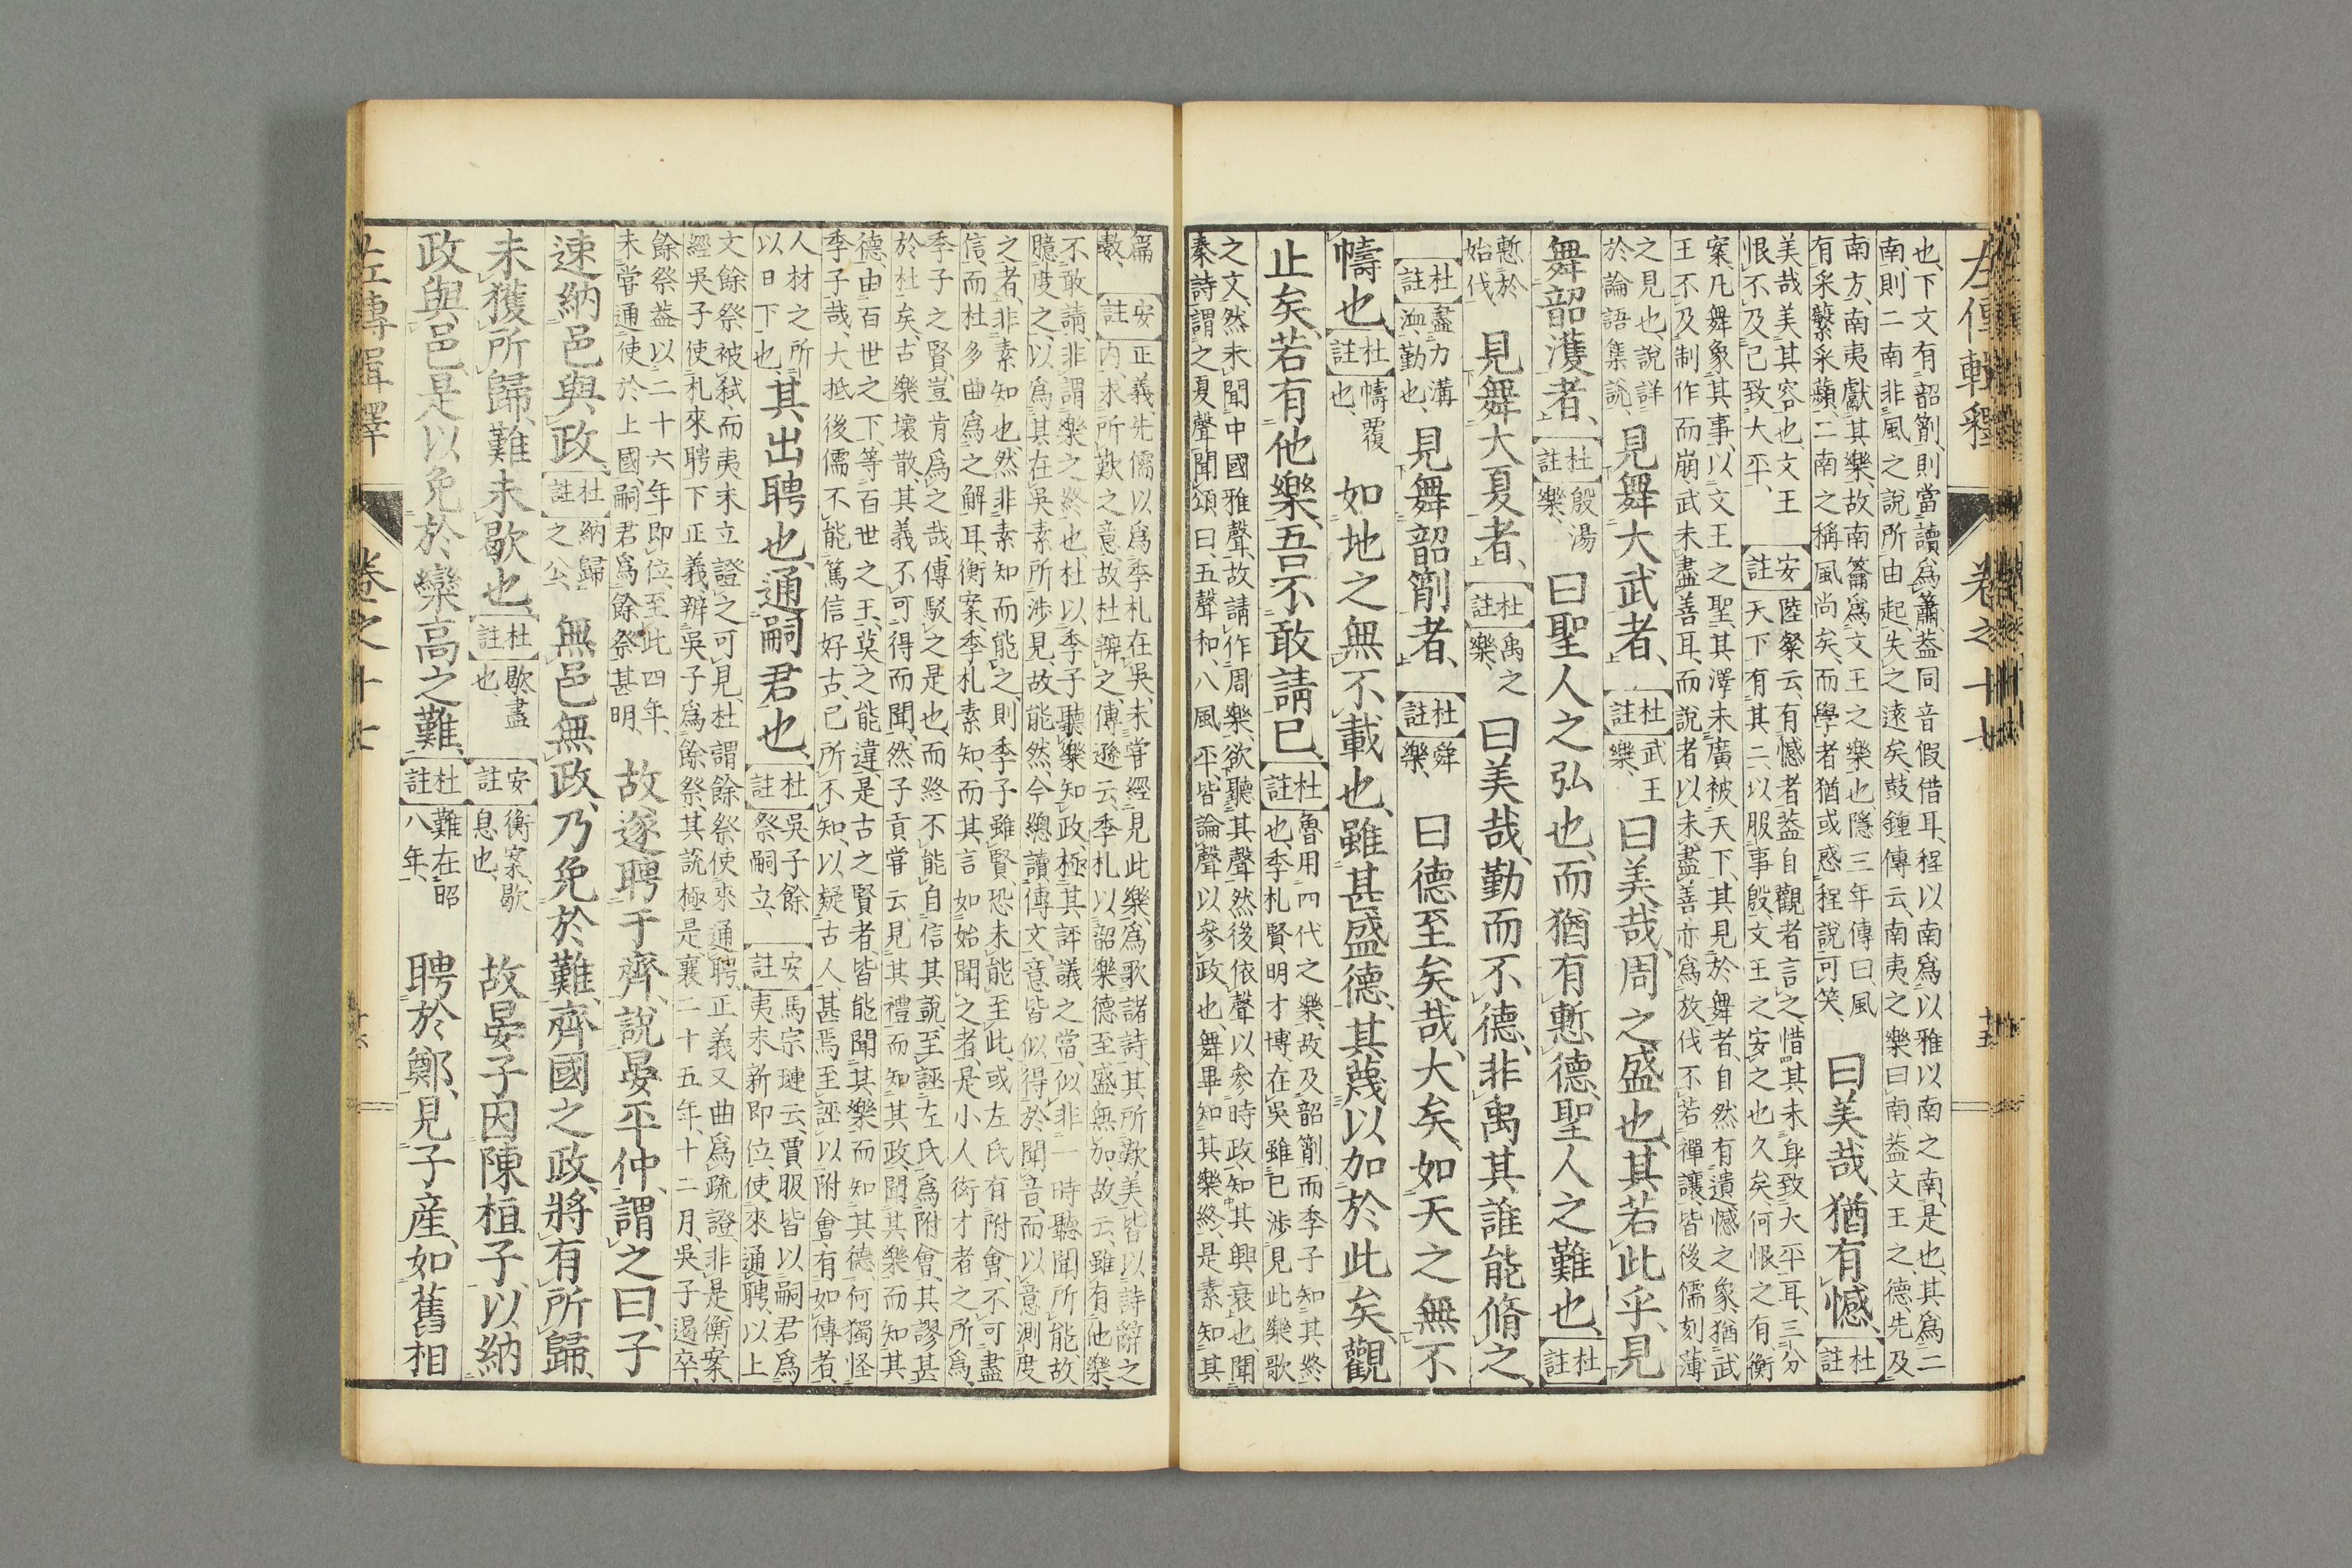 左傳輯釋 卷之十七 十五
也、下文有韶箾、則當讀爲簫、蓋同音假借耳、程以南爲以雅以南之南、是也、其爲二
南、則二南非風之說所由起、失之遠矣、鼓鍾傳云、南夷之樂曰南、蓋文王之德、先及
南方、南夷獻其樂、故南籥爲文王之樂也、隱三年傳曰、風
有采蘩采蘋、二南之稱風尚矣、而學者猶或惑程說、可笑、
曰美哉、猶有憾、杜註
美哉美其容也、文王
恨不及己致大平、
安註
陸粲云、有憾者蓋自觀者言之、惜其未身致大平耳、三分
天下有其二、以服事殷、文王之安之也久矣、何恨之有、衡
案、凡舞象其事、以文王之聖、其澤未廣被天下、其見於舞者、自然有遺憾之象、猶武
王不及制作而崩、武未盡善耳、而說者以未盡善、亦爲放伐不若禪讓、皆後儒刻薄
之見也、說詳
於論語集說、
見舞大武者、杜註
武王
樂、
曰美哉、周之盛也、其若此乎、見
舞韶濩者、杜註
殷湯
樂、
曰聖人之弘也、而猶有慙德、聖人之難也、杜註
慙於
始伐
見舞大夏者、杜註
禹之
樂、
曰美哉、勤而不德、非禹其誰能脩之、
杜註
盡力溝
洫勤也、
見舞韶箾者、杜註
舜
樂、
曰德至矣哉、大矣、如天之無不
幬也、杜註
幬覆
也、
如地之無不載也、雖甚盛德、其蔑以加於此矣、觀
止矣、若有他樂、吾不敢請已、杜註
魯用四代之樂、故及韶箾、而季子知其終
也、季札賢明才博、在吳雖已涉見此樂歌
之文、然未聞中國雅聲、故請作周樂、欲聽其聲、然後依聲以參時政、知其興衰也、聞
秦詩、謂之夏聲、聞頌曰、五聲和、八風平、皆論聲以參政也、舞畢知其樂終、是素知其
篇
數、
安註
正義、先儒以爲季札在吳、未嘗經見此樂、爲歌諸詩、其所歎美、皆以詩辭之
内、求所歎之意、故杜辨之、傳遜云、季札以韶樂德至盛無加、故云、雖有他樂、
不敢請、非謂樂之終也、杜以季子聽樂知政、極其評議之當、似非一時聽聞所能、故
臆度之、以爲其在吳素所涉見、故能然、今總讀傳文、意皆似得於聞音、而以意測度
之者、非素知也、然非素知而能之、則季子雖賢、恐未能至此、或左氏有附會、不可盡
信、而杜多曲爲之解耳、衡案、季札素知、而其言如始聞之者、是小人衒才者之所爲、
季子之賢、豈肯爲之哉、傳駁之是也、而終不能自信其說、至誣左氏爲附會、其謬甚
於杜矣、古樂壞散、其義不可得而聞、然子貢嘗云、見其禮而知其政、聞其樂而知其
德、由百世之下、等百世之王、莫之能違、是古之賢者、皆能聞其樂而知其德、何獨怪
季子哉、大抵後儒不能篤信好古、已所不知、以疑古人、甚焉至誣以附會、有如傳者、
人材之所
以日下也、
其出聘也、通嗣君也、杜註
吳子餘
祭嗣立、
安註
馬宗璉云、賈服皆以嗣君爲
夷未、新即位、使來通聘、以上
文餘祭被弒、而夷末立證之可見、杜謂餘祭使來通聘、正義又曲爲疏證、非是、衡案、
經吳子使札來聘下正義、辨吳子爲餘祭、其說極是、襄二十五年、十二月、吳子遏卒、
餘祭蓋以二十六年即位、至此四年、
未嘗通使於上國、嗣君爲餘祭甚明、
故遂聘于齊、說晏平仲、謂之曰、子
速納邑與政、杜註
納歸
之公、
無邑無政、乃免於難、齊國之政、將有所歸、
未獲所歸、難未歇也、杜註
歇盡
也、
安註
衡案、歇
息也、
故晏子因陳桓子、以納
政與邑、是以免於欒高之難、杜註
難在昭
八年、
聘於鄭、見子産、如舊相
左傳輯釋 卷之十七 十六